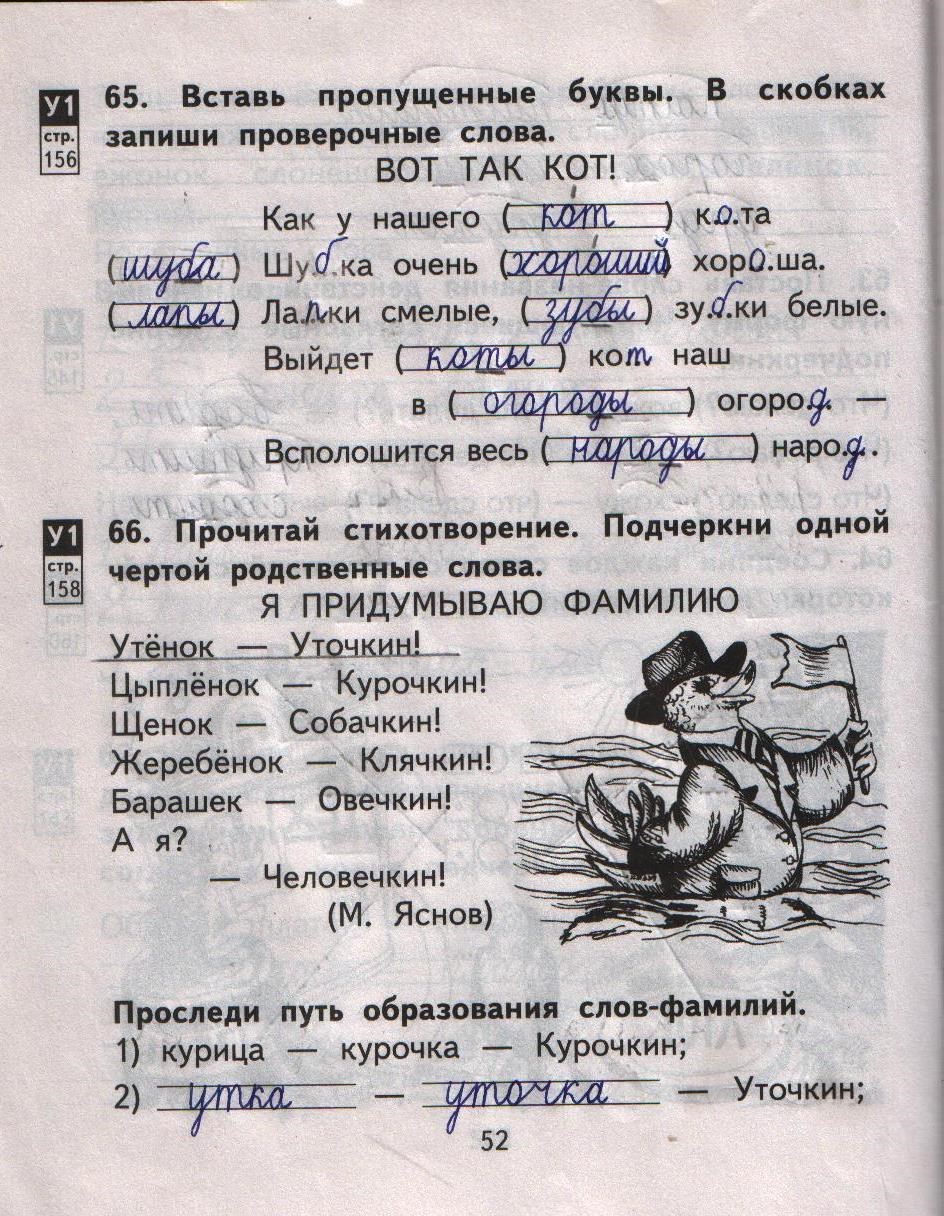 У1
стр.
156
65. Вставь пропущенные буквы. В скобках
запиши проверочные слова.
ВОТ ТАК КОТ!
Как у нашего (кот) к.о.та
(шуба) Шу.б.ка очень (хороший) хор.о.ша.
(лапы) Ла.п.ки смелые, (зубы) зу.б.ки белые.
Выйдет (коты) кот наш
в (огороды) огоро.д. —
Всполошится весь (народы) наро.д..
У1
стр.
158
66. Прочитай стихотворение. Подчеркни одной
чертой родственные слова.
Я ПРИДУМЫВАЮ ФАМИЛИЮ
Утёнок — Уточкин!
Цыплёнок — Курочкин!
Щенок — Собачкин!
Жеребёнок — Клячкин!
Барашек — Овечкин!
А я?
— Человечкин!
(М. Яснов)
Проследи путь образования слов-фамилий.
1) курица — курочка — Курочкин;
2) утка — уточка — Уточкин;
52